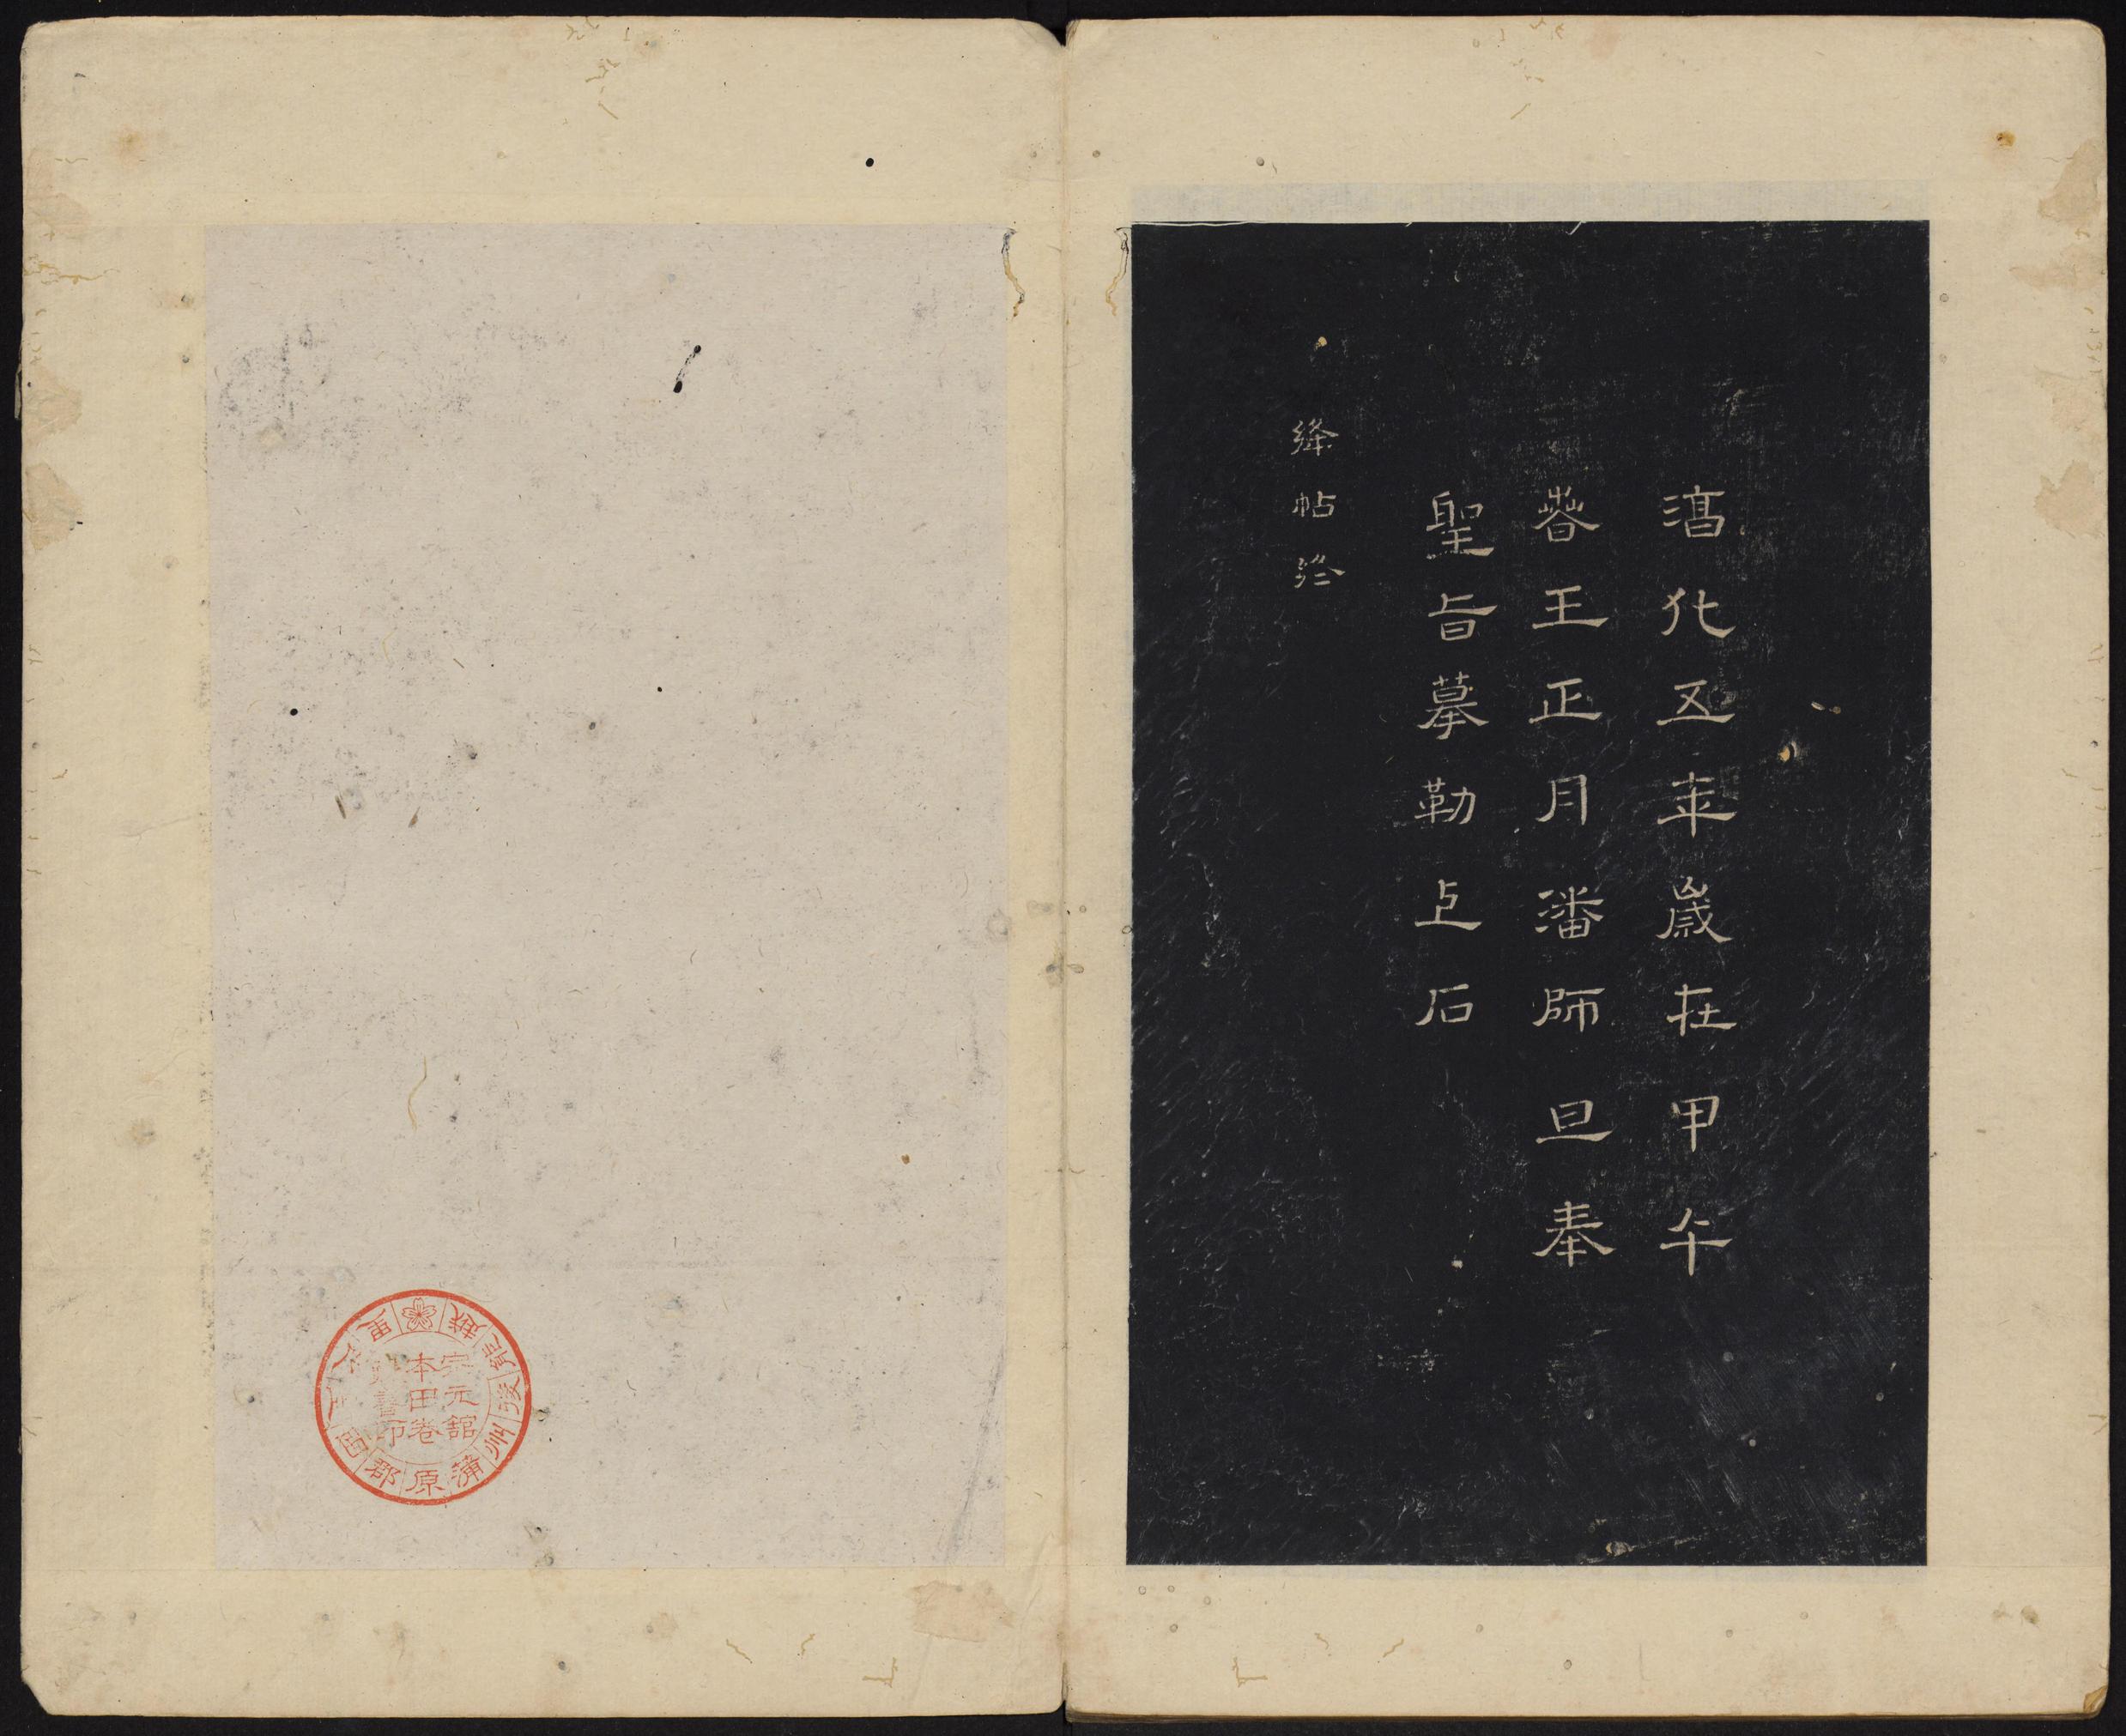 淳化五年歲在甲午
春王正月潘師旦奉
聖旨摹勒上石
絳帖終
越後州蒲原郡
宗元館
本田卷
書印